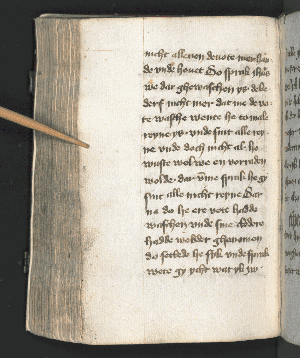 nicht allenen de vote mer han
de vnde hovet Do sprak ihesus
we dar ghewasschen ys de be
derf nicht mer dat me de vo
te wassche wente he is male
reyne ys vnde sint alle rey
ne vnde doch nicht al he
wuste wol we en vorraden
wolde dar vme sprak he gy
sint alle nicht reyne Dar
na do he ere vote hadde
wasschen vnde sine cledere
hadde wedder ghenomen
do settede he syk vnde sprak
wete gy ycht wat yk iw